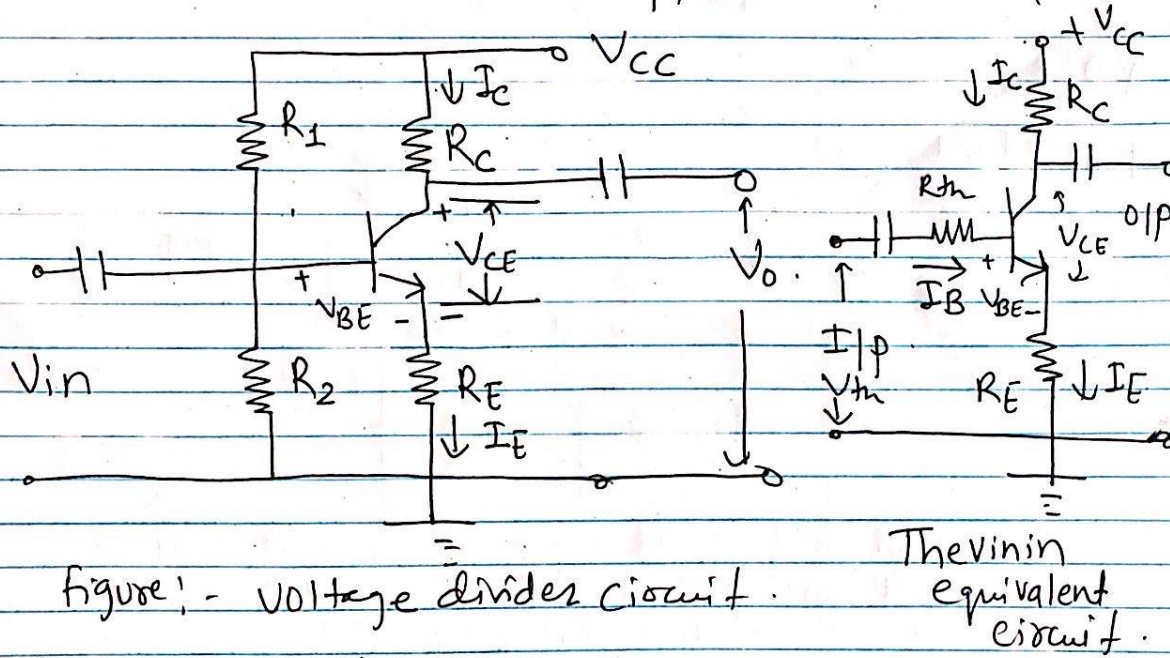 VCC
IC
R1
RC
+
VCE
+
VBE
-
=
Vo.
Vin
R2
RE
IE
figure:- voltage divider circuit.
+ VCC
IC
RC
Rth
O/P
VCE
IB
+
VBE-
I/P
Vth
RE
IE
Thevinin
equivalent
circuit.